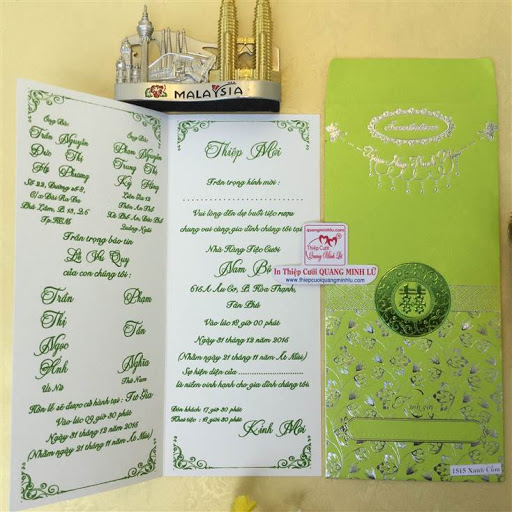 MALAYSIA
Ông Bà:
Trần Nguyên
Đức Thị
Hỷ Phương
Ông Bà:
Phan Nguyễn
Trung Thị
Kỳ Hồng
Trân trọng báo tin
Lễ Vu Quy
của con chúng tôi:
Trần
Thị
Ngọc
Anh
Út Nữ
Phạm
Tấn
Nghĩa
Thứ Nam
Hôn lễ sẽ được cử hành tại: Tư Gia
Vào lúc 09 giờ 30 phút
Ngày 31 tháng 12 năm 2016
(Nhằm ngày 21 tháng 11 năm Ất Mùi)
Thiệp Mời
Trân trọng kính mời:
Vui lòng đến dự buổi tiệc rượu
chung vui cùng gia đình chúng tôi tại
Nhà Hàng Tiệc Cưới
Nam Bộ
616A Âu Cơ, P. Hòa Thạnh,
Tân Phú
Vào lúc 18 giờ 00 phút
Ngày 31 tháng 12 năm 2016
(Nhằm ngày 21 tháng 11 năm Ất Mùi)
Sự hiện diện của
là niềm vinh hạnh cho gia đình chúng tôi.
Đón khách: 17 giờ 30 phút
Khai tiệc: 18 giờ 30 phút
Kính Mời
quangminhlu.com
Thiệp Cưới
Quang Minh Lũ
In Thiệp Cưới QUANG MINH LŨ
www.thiepcuoiquangminhlu.com
囍
1515 Xanh Cốm